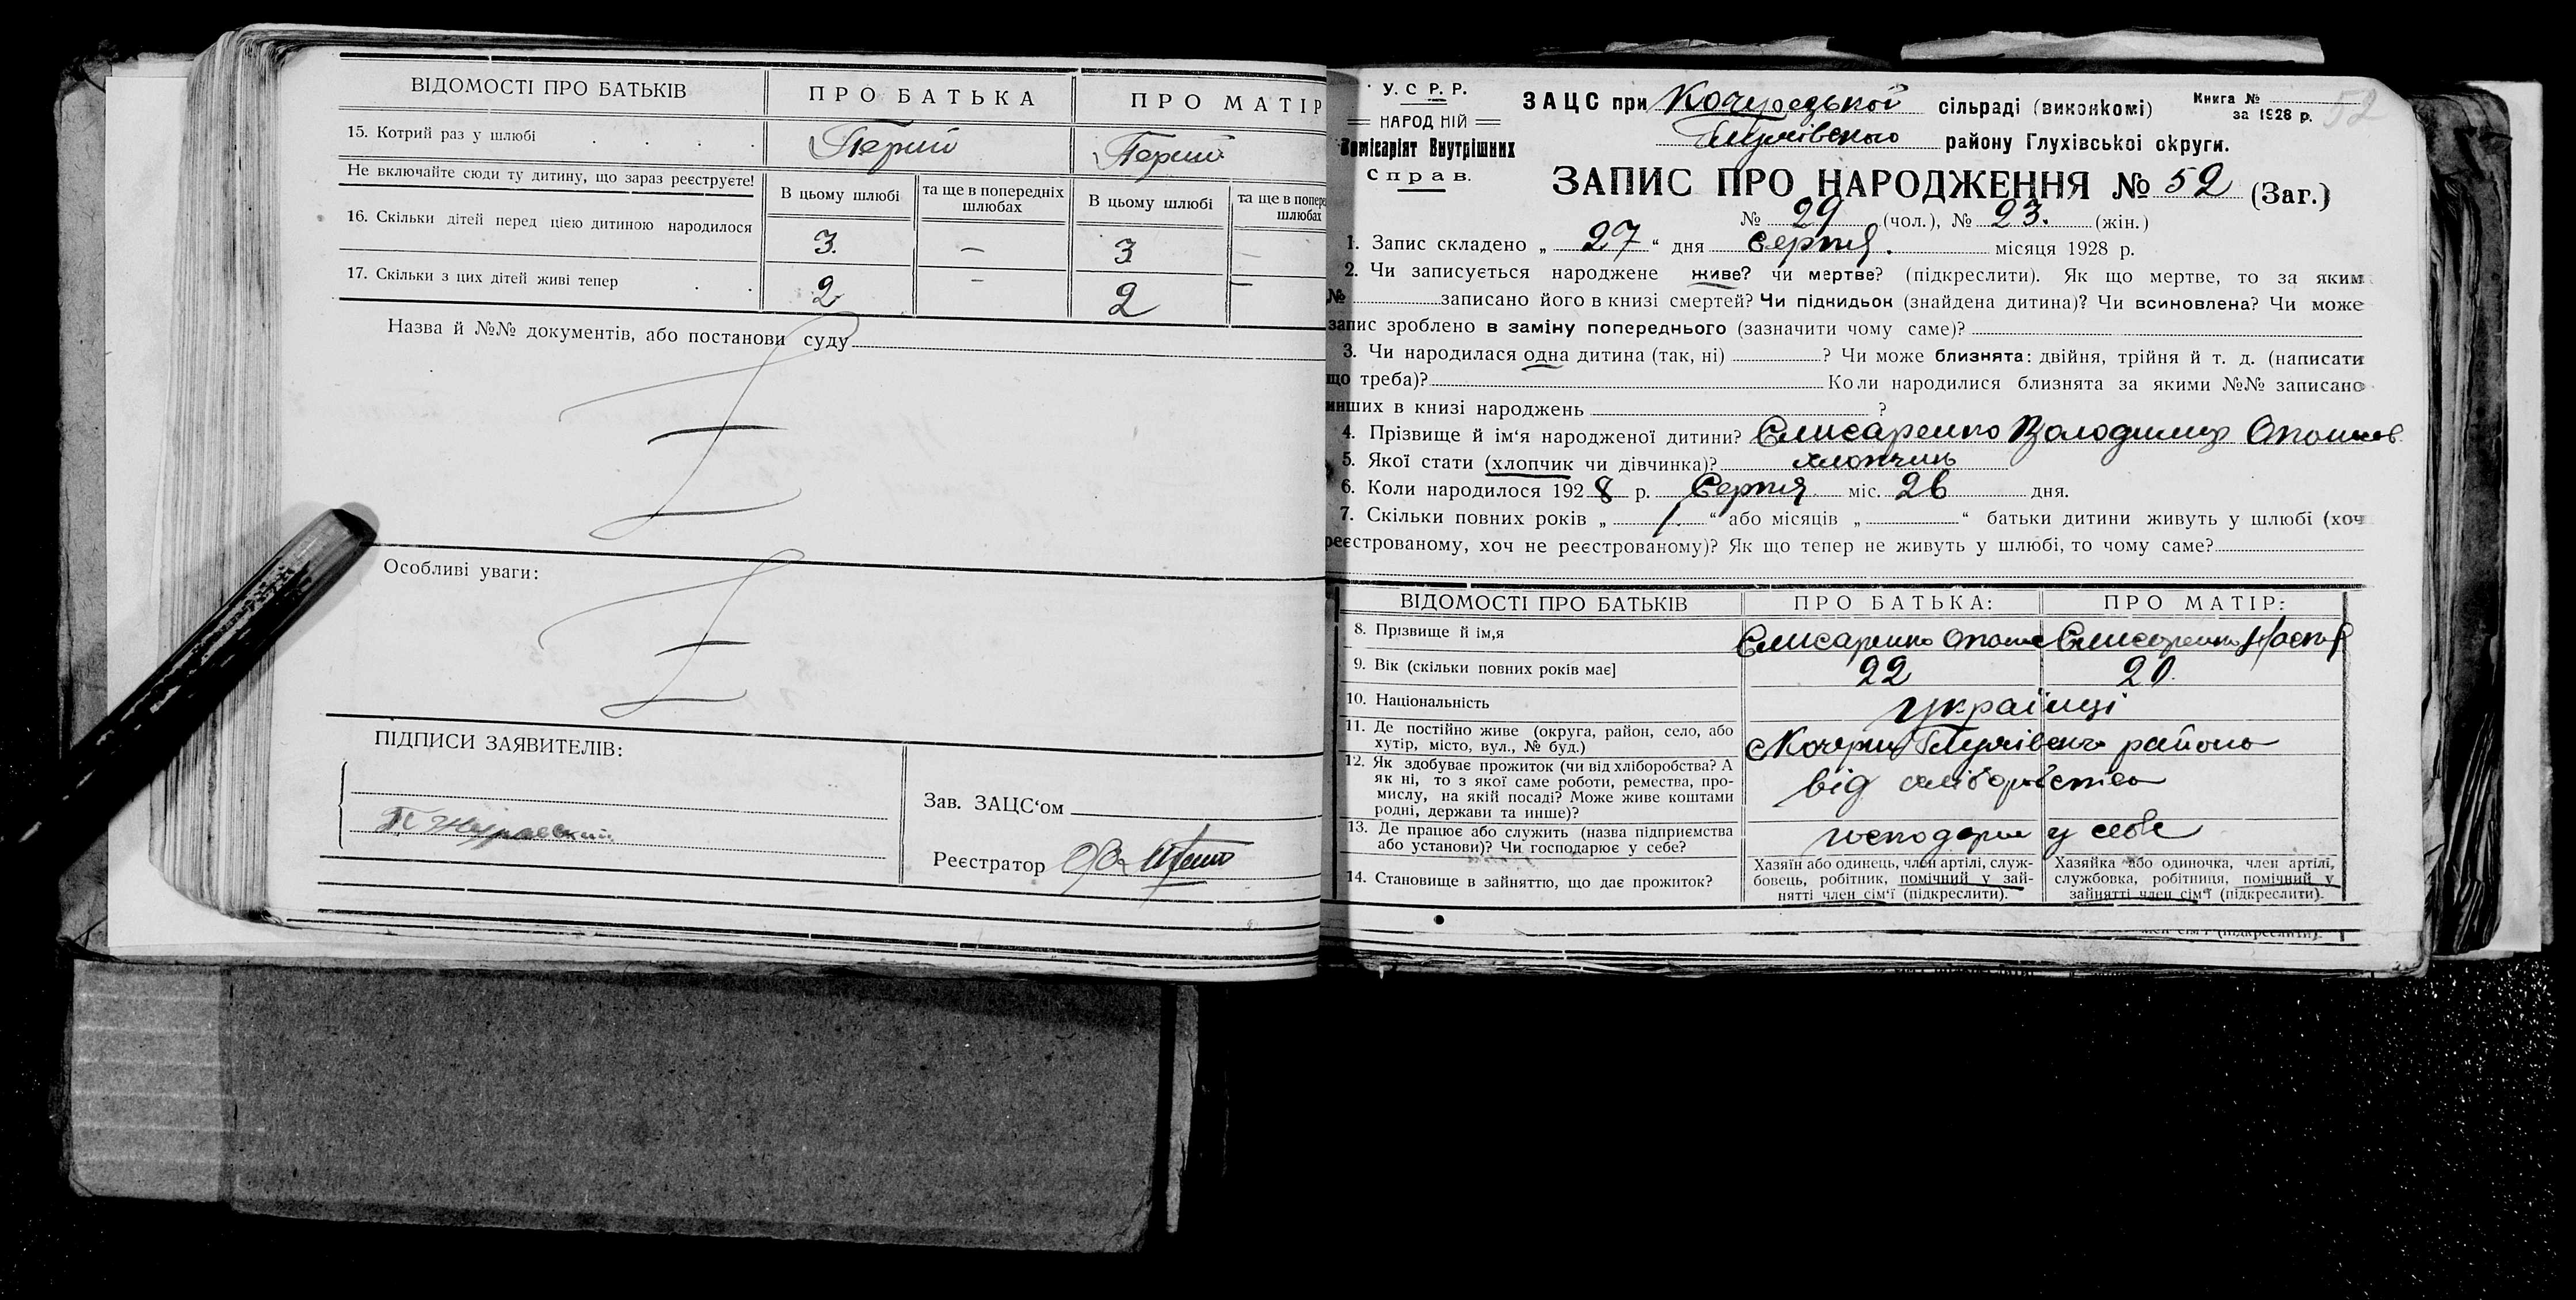 ВІДОМОСТІ ПРО БАТЬКІВ
ПРО БАТЬКА
ПРО МАТІР
15. Котрий раз у шлюбі
Перший
Перший
Не включайте сюди ту дитину, що зараз реєструєте!
В цьому шлюбі
та ще в попередніх шлюбах
В цьому шлюбі
та ще в попере
шлюбах
16. Скільки дітей перед цією дитиною народилося
3.
—
3
—
17. Скільки з цих дітей живі тепер
2
—
2
—
Назва й №№ документів, або постанови суду
Особливі уваги:
ПІДПИСИ ЗАЯВИТЕЛІВ:
Зав. ЗАЦС‘ом
Реєстратор
У. С. Р. Р.
НАРОДНІЙ
Комісаріят Внутрішних
Справ.
ЗАЦС при сільраді (виконкомі)
Глухівського району Глухівської округи.
Книга №
за 1928 р.
52
ЗАПИС ПРО НАРОДЖЕННЯ № 52 (Заг.)
№ 29 (чол.), № 23. (жін.)
1. Запис складено „ 27 “ дня Серпня. місяця 1928 р.
2. Чи записується народжене живе? чи мертве? (підкреслити). Як що мертве, то за яким
№ записано його в книзі смертей? Чи підкидьок (знайдена дитина)? Чи всиновлена? Чи може
запис зроблено в заміну попереднього (зазначити чому саме)?
3. Чи народилася одна дитина (так, ні) ? Чи може близнята: двійня, трійня й т. д. (написати
що треба)? Коли народилися близнята за якими №№ записано
инших в книзі народжень ?
4. Прізвище й ім‘я народженої дитини? Єлисаренко Володимир
5. Якої стати (хлопчик чи дівчинка)? хлопчик
6. Коли народилося 1928 р. Серпня міс. 26 дня.
7. Скільки повних років „ 1. “ або місяців „ “ батьки дитини живуть у шлюбі (хоч
реєстрованому, хоч не реєстрованому)? Як що тепер не живуть у шлюбі, то чому саме?
ВІДОМОСТІ ПРО БАТЬКІВ
ПРО БАТЬКА:
ПРО МАТІР:
8. Прізвище й ім,я
Єлисаренко
Єлисаренко
9. Вік (скільки повних років має]
22
20.
10. Національність
Українці
11. Де постійно живе (округа, район, село, або
хутір, місто, вул., № буд.)
Глухівского району
12. Як здобуває прожиток (чи від хліборобства? А
як ні, то з якої саме роботи, ремества, про-
мислу, на якій посаді? Може живе коштами
родні, держави та инше)?
від хліборобства
13. Де працює або служить (назва підприємства
або установи)? Чи господарює у себе?
господарює у себе
14. Становище в зайняттю, що дає прожиток?
Хазяїн або одинець, член артілі, служ-
бовець, робітник, помічний у зай-
нятті член сім‘ї (підкреслити).
Хазяйка або одиночка, член артілі,
службовка, робітниця, помічний у
зайнятті член сім‘ї (підкреслити).
член сім‘ї (підкреслити).